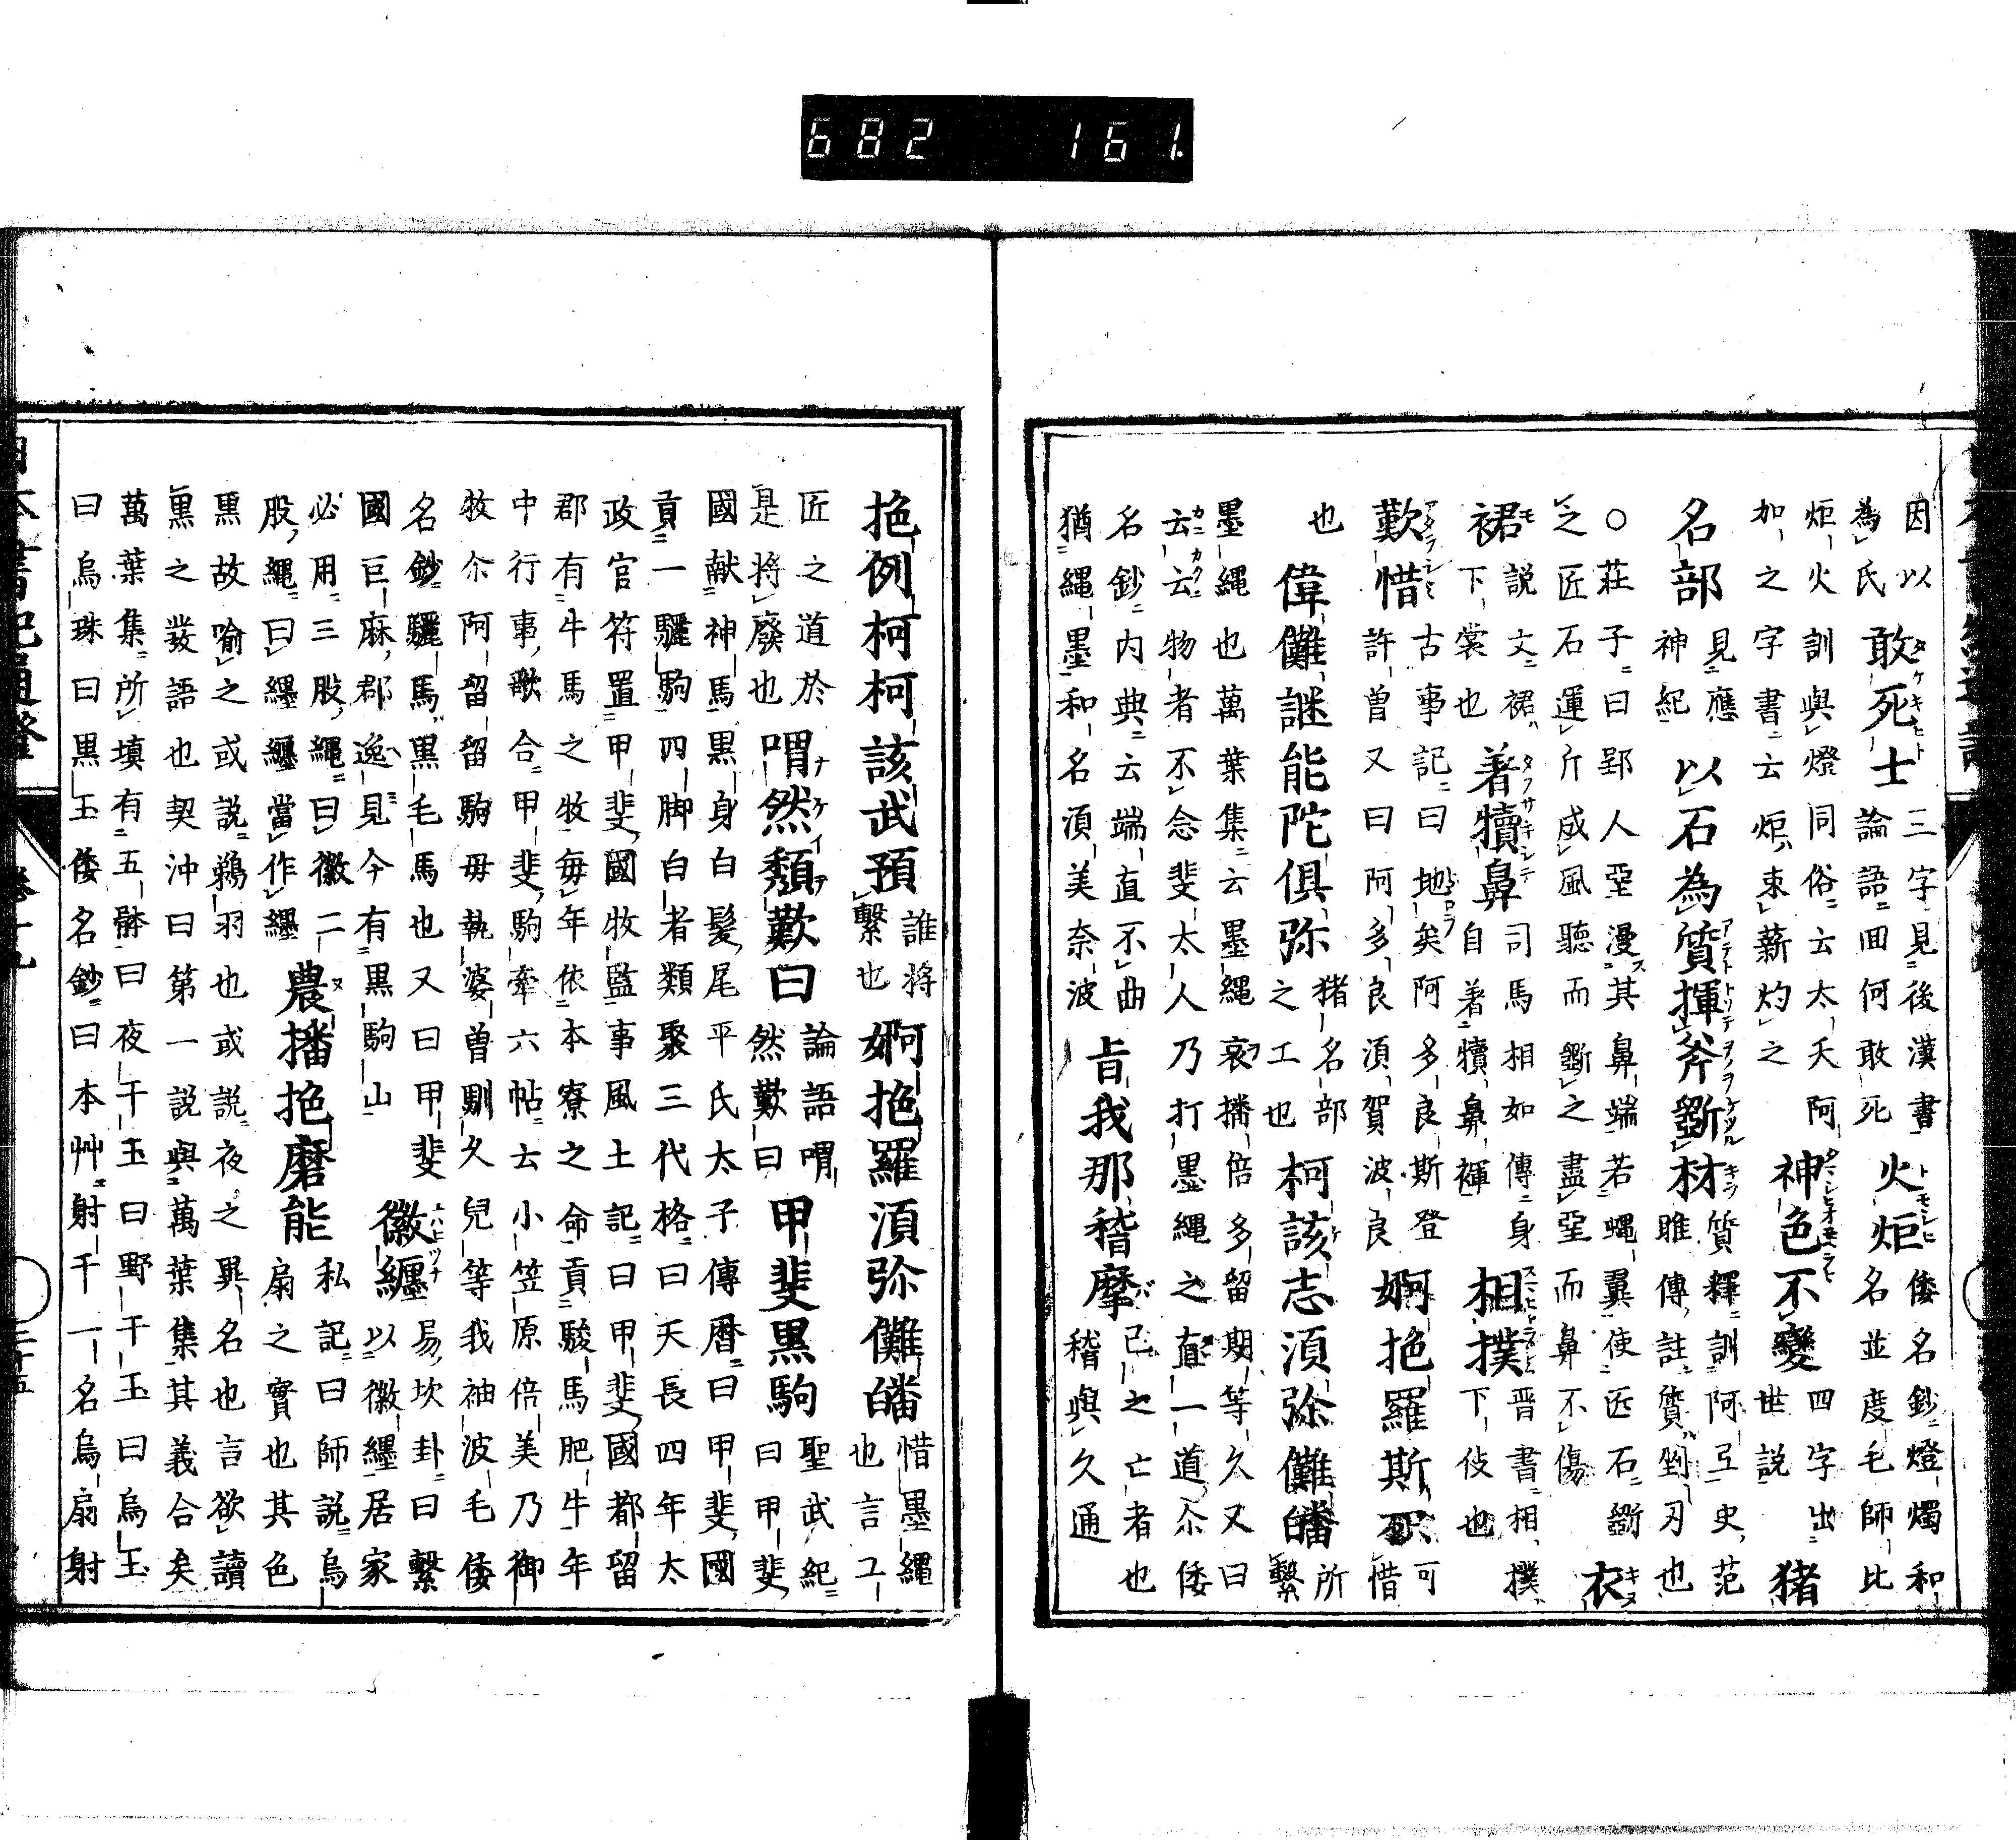 682 161.
因以
為氏
敢死士
三字見後漢書
論語回何敢死
火炬
倭名鈔燈燭和
名並度毛師比
炬火訓與燈同俗云太天阿
加之字書云炬束薪灼之
神色不變
四字出
世説
猪
名部
見應
神紀
以石為質揮斧斲材
質釋訓阿弖史范
雎傳註質剉刃也
○莊子曰郢人堊漫其鼻端若蠅翼使匠石斲
之匠石運斤成風聽而斲之盡堊而鼻不傷
衣
裙
説文裙
下裳也
著犢鼻
司馬相如傳身
自著犢鼻褌
相撲
晋書相撲
下伎也
歎惜
古事記曰地矣阿多良斯登
許曽又曰阿多良須賀波良
婀拕羅斯枳
可
惜
也
偉儺謎能陀俱弥
猪名部
之工也
柯該志須弥儺皤
所
繫
墨繩也萬葉集云墨繩哀播倍多留期等久又曰
云云物者不念斐太人乃打墨繩之直一道尒倭
名鈔内典云端直不曲
猶繩墨和名須美奈波
旨我那稽摩
己之亡者也
稽與久通
拕例柯柯該武預
誰将
繫也
婀拕羅須弥儺皤
惜墨繩
也言工
匠之道於
是将廢也
喟然頽歎曰
論語喟
然歎曰
甲斐黒駒
聖武紀
曰甲斐
國献神馬黒身白髪尾平氏太子傳暦曰甲斐國
貢一驪駒四脚白者類聚三代格曰天長四年太
政官符置甲斐國牧監事風土記曰甲斐國都留
郡有牛馬之牧毎年依本寮之命貢駿馬肥牛年
中行事歌合甲斐駒牽六帖云小笠原倍美乃御
牧尒阿留留駒毋執婆曽馴久兒等我袖波毛倭
名鈔驪馬黒毛馬也又曰甲斐
國巨麻郡逸見今有黒駒山
徽纒
易坎卦曰繫
以徽纆居家
必用三股繩曰徽二
股繩曰纆纒當作纆
農播拕磨能
私記曰師説烏
扇之實也其色
黒故喻之或説鵜羽也或説夜之異名也言欲讀
黒之發語也契沖曰第一説與萬葉集其義合矣
萬葉集所填有五骵曰夜干玉曰野干玉曰烏玉
曰烏珠曰黒玉倭名鈔曰本艸射干一名烏扇射